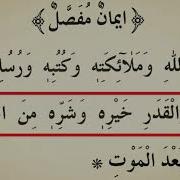 ﴿ اِيمَانْ مُفَصَّلْ ﴾
للهِ وَمَلَائِكَتِهٖ وَكُتُبِهٖ وَرُسُلِ
الْقَدَرِ خَيْرِهٖ وَشَرِّهٖ مِنَ
بَعْدَ الْمَوْتِ *